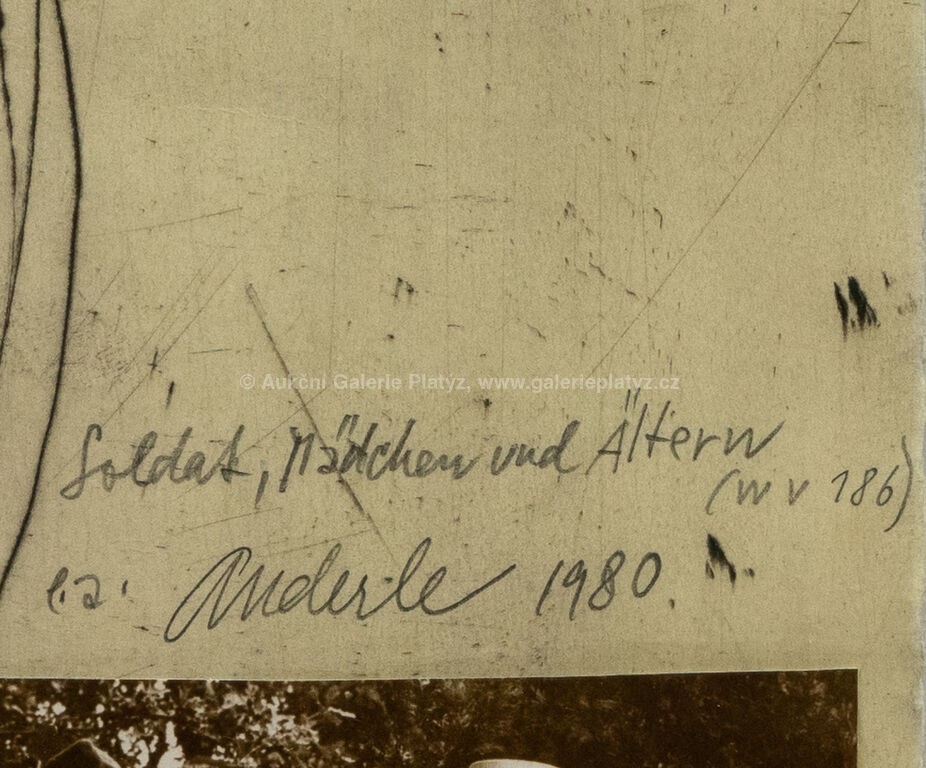 © Aurční Galerie Platýz, www.galerieplatyz.cz
Soldat, Mädchen und Ältern
(WV 186)
e.a. Anderle 1980.